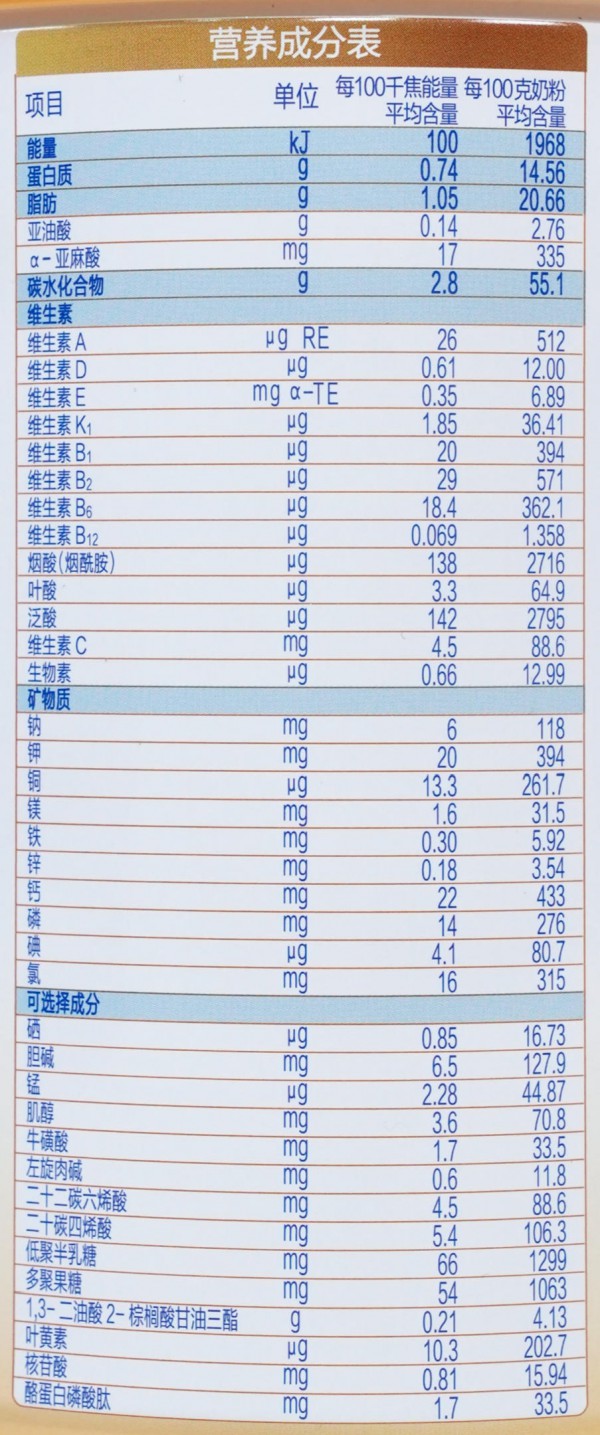 营养成分表
项目 单位 每100千焦能量 每100克奶粉
平均含量 平均含量
能量 kJ 100 1968
蛋白质 g 0.74 14.56
脂肪 g 1.05 20.66
亚油酸 g 0.14 2.76
α-亚麻酸 mg 17 335
碳水化合物 g 2.8 55.1
维生素
维生素A μg RE 26 512
维生素D μg 0.61 12.00
维生素E mg α-TE 0.35 6.89
维生素K1 μg 1.85 36.41
维生素B1 μg 20 394
维生素B2 μg 29 571
维生素B6 μg 18.4 362.1
维生素B12 μg 0.069 1.358
烟酸(烟酰胺) μg 138 2716
叶酸 μg 3.3 64.9
泛酸 μg 142 2795
维生素C mg 4.5 88.6
生物素 μg 0.66 12.99
矿物质
钠 mg 6 118
钾 mg 20 394
铜 μg 13.3 261.7
镁 mg 1.6 31.5
铁 mg 0.30 5.92
锌 mg 0.18 3.54
钙 mg 22 433
磷 mg 14 276
碘 μg 4.1 80.7
氯 mg 16 315
可选择成分
硒 μg 0.85 16.73
胆碱 mg 6.5 127.9
锰 μg 2.28 44.87
肌醇 mg 3.6 70.8
牛磺酸 mg 1.7 33.5
左旋肉碱 mg 0.6 11.8
二十二碳六烯酸 mg 4.5 88.6
二十碳四烯酸 mg 5.4 106.3
低聚半乳糖 mg 66 1299
多聚果糖 mg 54 1063
1,3-二油酸2-棕榈酸甘油三酯 g 0.21 4.13
叶黄素 μg 10.3 202.7
核苷酸 mg 0.81 15.94
酪蛋白磷酸肽 mg 1.7 33.5